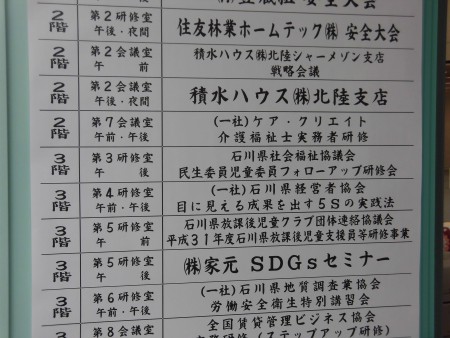 安全大会
2階 第2研修室 午後・夜間 住友林業ホームテック㈱ 安全大会
2階 第2会議室 午前 積水ハウス㈱北陸シャーメゾン支店
戦略会議
2階 第2会議室 午後・夜間 積水ハウス㈱北陸支店
2階 第7会議室 午前・午後 (一社)ケア・クリエイト
介護福祉士実務者研修
3階 第3研修室 午後 石川県社会福祉協議会
民生委員児童委員フォローアップ研修会
3階 第4研修室 午前・午後 (一社)石川県経営者協会
目に見える成果を出す5Sの実践法
3階 第5研修室 午前 石川県放課後児童クラブ団体連絡協議会
平成31年度石川県放課後児童支援員等研修事業
3階 第5研修室 午後 ㈱家元 SDGsセミナー
3階 第6研修室 午前・午後 (一社)石川県地質調査業協会
労働安全衛生特別講習会
3 第8会議室 全国賃貸管理ビジネス協会
(ステップアップ研修)